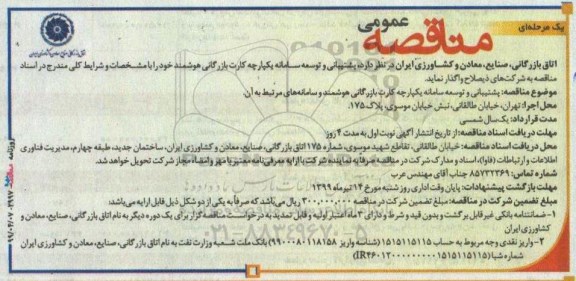 یک مرحله‌ای
مناقصه عمومی
اتاق بازرگانی، صنایع، معادن و کشاورزی ایران در نظر دارد، پشتیبانی و توسعه سامانه یکپارچه کارت بازرگانی هوشمند خود را با مشخصات و شرایط کلی مندرج در اسناد
مناقصه به شرکت‌های ذیصلاح واگذار نماید.
موضوع مناقصه: پشتیبانی و توسعه سامانه یکپارچه کارت بازرگانی هوشمند و سامانه‌های مرتبط به آن
محل اجرا: تهران، خیابان طالقانی، نبش خیابان موسوی، پلاک ۱۷۵.
مدت قرارداد: یک سال شمسی
مهلت دریافت اسناد مناقصه: از تاریخ انتشار آگهی نوبت اول به مدت ۴ روز
محل دریافت اسناد مناقصه: خیابان طالقانی، تقاطع شهید موسوی، شماره ۱۷۵ اتاق بازرگانی، صنایع، معادن و کشاورزی ایران، ساختمان جدید، طبقه چهارم، مدیریت فناوری
اطلاعات و ارتباطات (فاوا)، اسناد و مدارک شرکت در مناقصه صرفا به نماینده شرکت با ارایه معرفی‌نامه معتبر با مهر و امضاء مجاز شرکت تحویل خواهد شد.
شماره تماس: ۸۵۷۳۲۳۶۹ جناب آقای مهندس عرب
مهلت بازگشت پیشنهادات: پایان وقت اداری روز شنبه مورخ ۱۴ تیرماه ۱۳۹۹
مبلغ تضمین شرکت در مناقصه: مبلغ تضمین شرکت در مناقصه ۳۰۰,۰۰۰,۰۰۰ ریال می‌باشد که صرفا به یکی از دو شکل ذیل قابل ارایه می‌باشد:
۱- ضمانتنامه بانکی غیر قابل برگشت و بدون قید و شرط و دارای ۳ ماه اعتبار اولیه و قابل تمدید به درخواست مناقصه گزار برای یک دوره دیگر به نام اتاق بازرگانی، صنایع، معادن و
کشاورزی ایران
۲- واریز نقدی وجه مربوط به حساب ۱۵۱۵۱۱۵۱۱۵ (شناسه واریز ۹۹۰۰۰۸۰۱۱۸۲۵۸) بانک ملت شعبه وزارت نفت به نام اتاق بازرگانی، صنایع، معادن و کشاورزی ایران
۰۲۱-۸۸۳۴۹۶۷۰-۵
روزنامه
۹۹/۰۴/۰۷